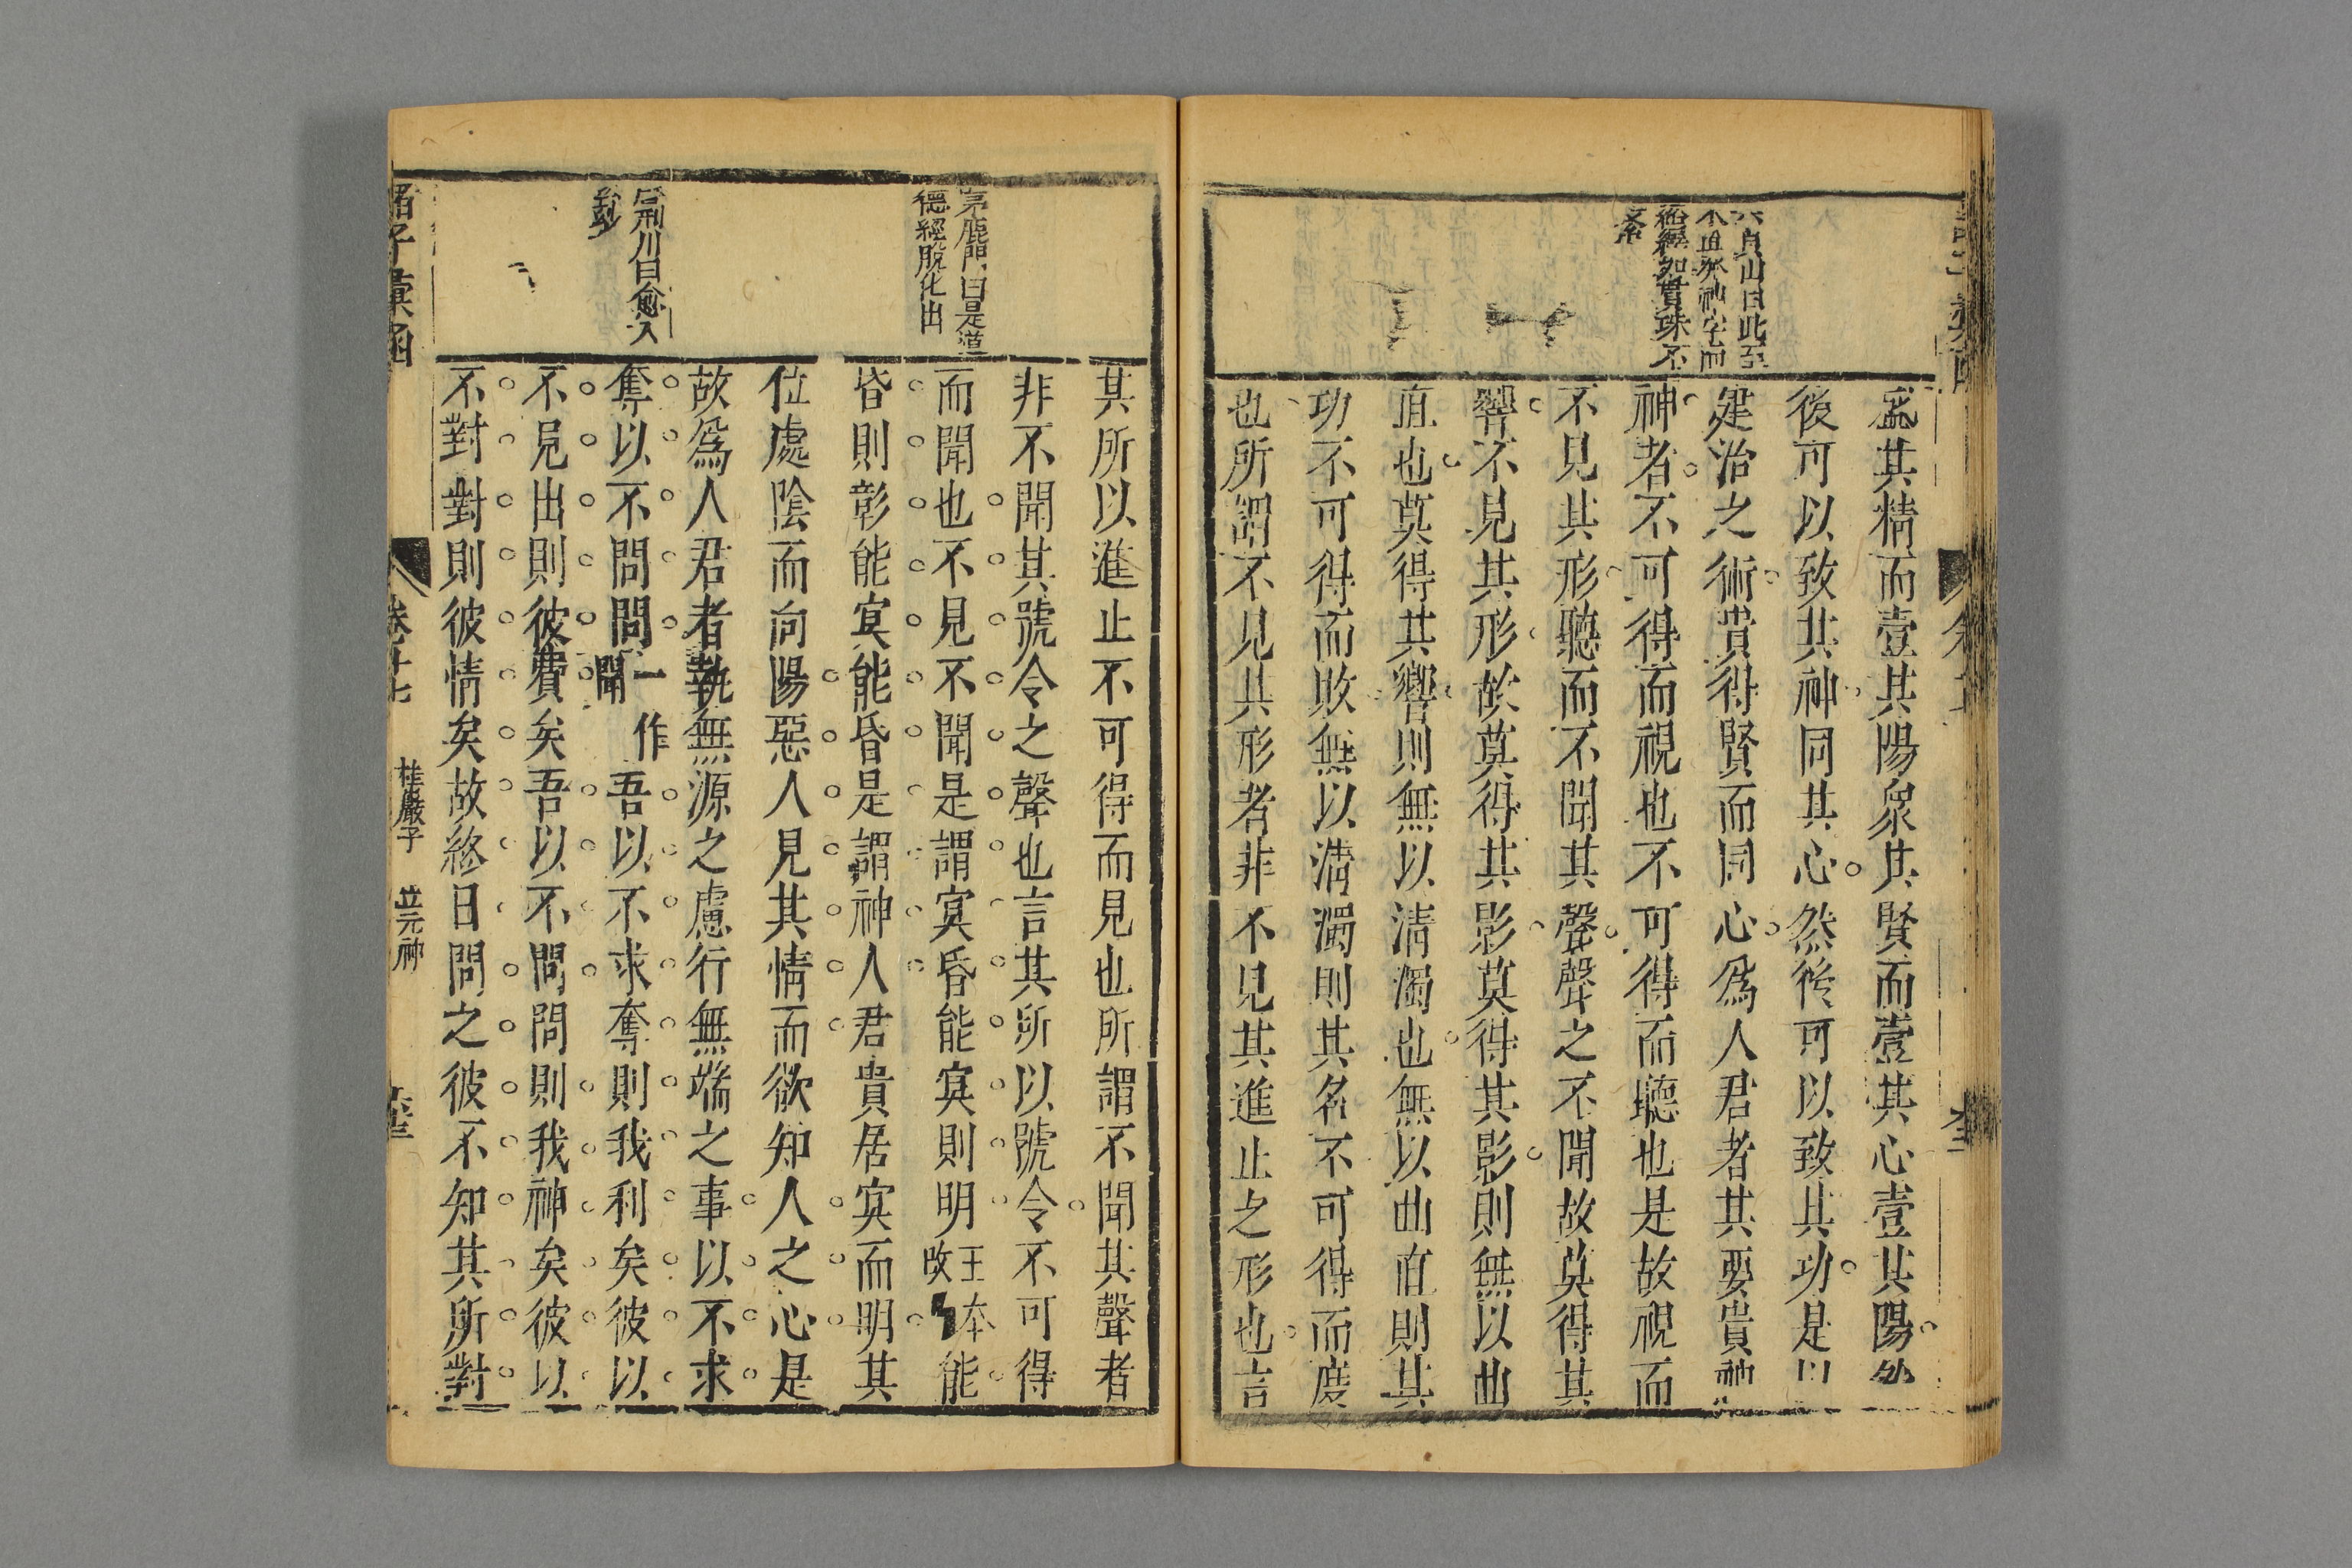 貞山曰此至
神字而
如貫珠不
紊
爲其精而壹其陽衆其賢而壹其心壹其陽然
後可以致其神同其心然後可以致其功是以
建治之術貴得賢而同心爲人君者其要貴神
神者不可得而視也不可得而聽也是故視而
不見其形聽而不聞其聲聲之不聞故莫得其
響不見其形故莫得其影莫得其影則無以曲
直也莫得其響則無以清濁也無以曲直則其
功不可得而敗無以清濁則其名不可得而度
也所謂不見其形者非不見其進止之形也言
茅鹿門曰是道
德經脫化出
唐荊川曰愈入
愈妙
其所以進止不可得而見也所謂不聞其聲者
非不聞其號令之聲也言其所以號令不可得
而聞也不見不聞是謂冥昏能冥則明王本改能
昏則彰能冥能昏是謂神人君貴居冥而明其
位處陰而向陽惡人見其情而欲知人之心是
故爲人君者執無源之慮行無端之事以不求
奪以不問問一作聞吾以不求奪則我利矣彼以
不見出則彼費矣吾以不問問則我神矣彼以
不對對則彼情矣故終日問之彼不知其所對
諸子彙函
卷十七
桂巖子
立元神